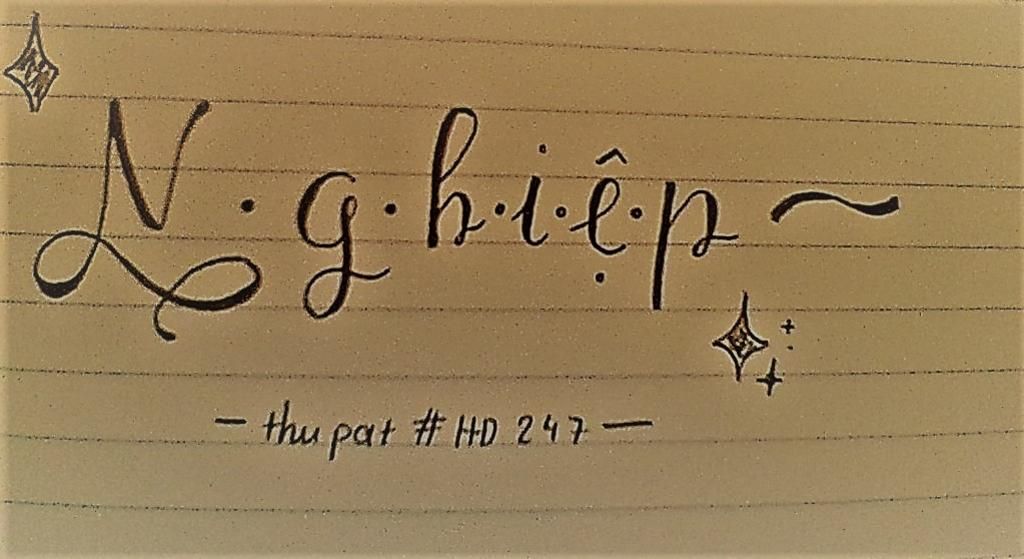 N.g.h.i.ệ.p ~
- thu pat # HD 247 -